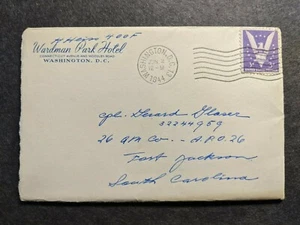 400F
Wardman Park Hotel
CONNECTICUT AVENUE AND WOODLEY ROAD
WASHINGTON, D.C.
WASHINGTON, D.C.
1944
Cpl. Gerard Glaser
32244959
26 A.P.O. 26
Fort Jackson
South Carolina